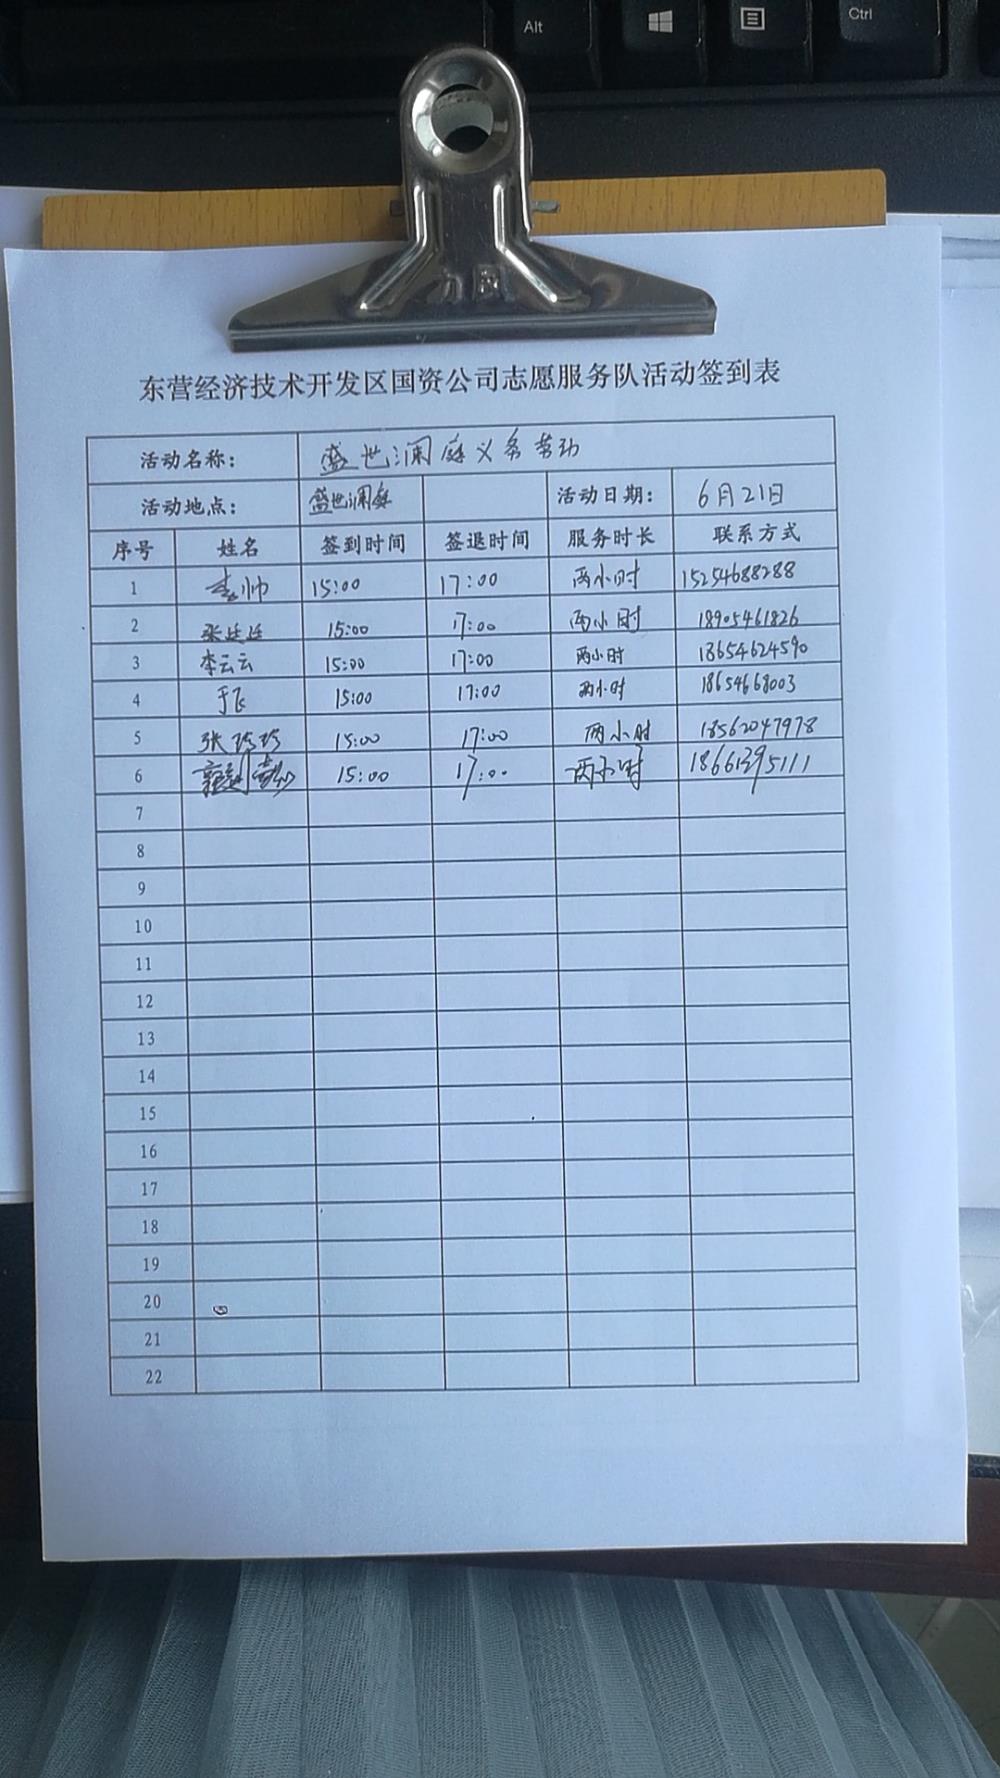 Alt
Ctrl
东营经济技术开发区国资公司志愿服务队活动签到表
活动名称: 盛世澜庭义务劳动
活动地点: 盛世澜庭 活动日期: 6月21日
序号 姓名 签到时间 签退时间 服务时长 联系方式
1 李帅 15:00 17:00 两小时 15254688288
2 张廷廷 15:00 17:00 两小时 18905461826
3 李云云 15:00 17:00 两小时 18654624590
4 于飞 15:00 17:00 两小时 18654668003
5 张玲玲 15:00 17:00 两小时 18562047978
6 15:00 17:00 两小时 18661395111
7
8
9
10
11
12
13
14
15
16
17
18
19
20
21
22